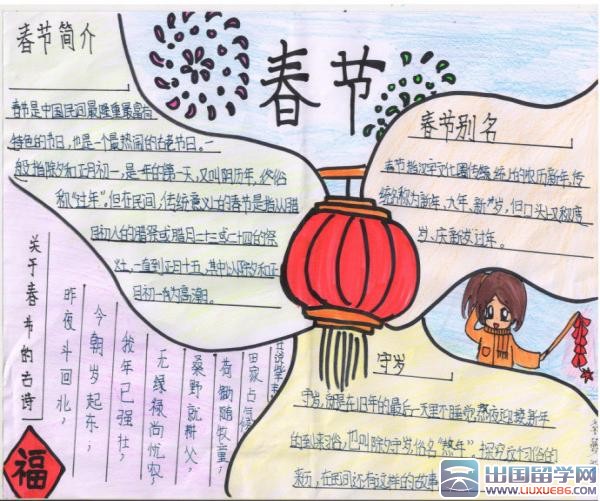 春节
春节简介
春节是中国民间最隆重最富有
特色的节日，也是一个最热闹的古老节日。一
般指除夕和正月初一，是一年的第一天，又叫阴历年，俗
和“过年”。但在民间，传统意义上的春节是指从腊
月初八的腊祭或腊月二十三或二十四的祭
灶，一直到正月十五，其中以除夕和正
月初一为高潮。
春节别名
春节指汉字文化圈传统上的农历新年，传
统称为新年、大年、新岁，但口头上又称度
岁、庆新岁、过年。
关于春节的古诗
昨夜斗回北，
今朝岁起东；
我年已强壮，
无绿禄尚忧农。
桑野就耕父，
荷锄随牧童；
田家占气
守岁
守岁，就是在旧年的最后一天里不睡觉，熬夜迎接新年
的到来习俗，也叫除夕守岁，俗名“熬年”。探究这个习俗的
来历，在民间还有这样的故事
福
出国留学网
www.liuxue86.com